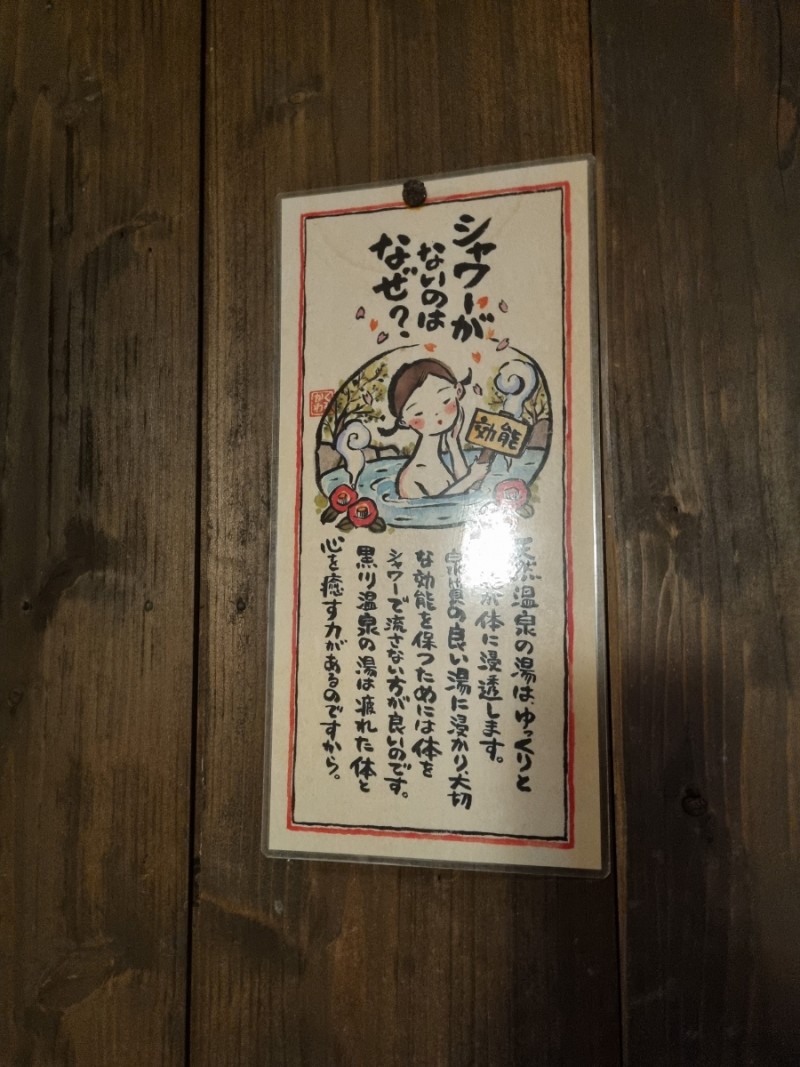 シャワーが
ないのは
なぜ？
効能
天然温泉の湯は、ゆっくりと
が体に浸透します。
泉質の良い湯に浸かり、大切
な効能を保つためには体を
シャワーで流さない方が良いのです。
黒川温泉の湯は疲れた体と
心を癒す力があるのですから。